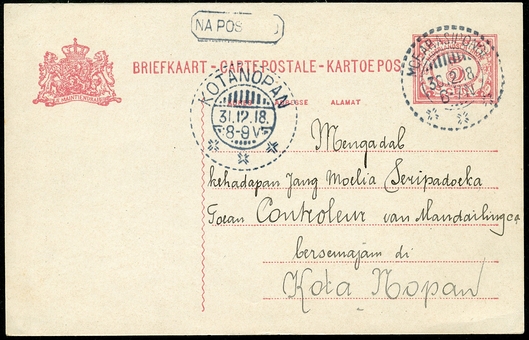 NA POS
BRIEFKAART-CARTE POSTALE-KARTOEPOS
JE MAINTIENDRAI
ADRESSE ALAMAT
KOTANOPAN
31.12.18.
8-9 V
30 12 18
6-7 N
Mengadab
kehadapan Jang Moelia Seripadoeka
Toean Controleur van Mandailing ca
bersemajam di
Kota Nopan